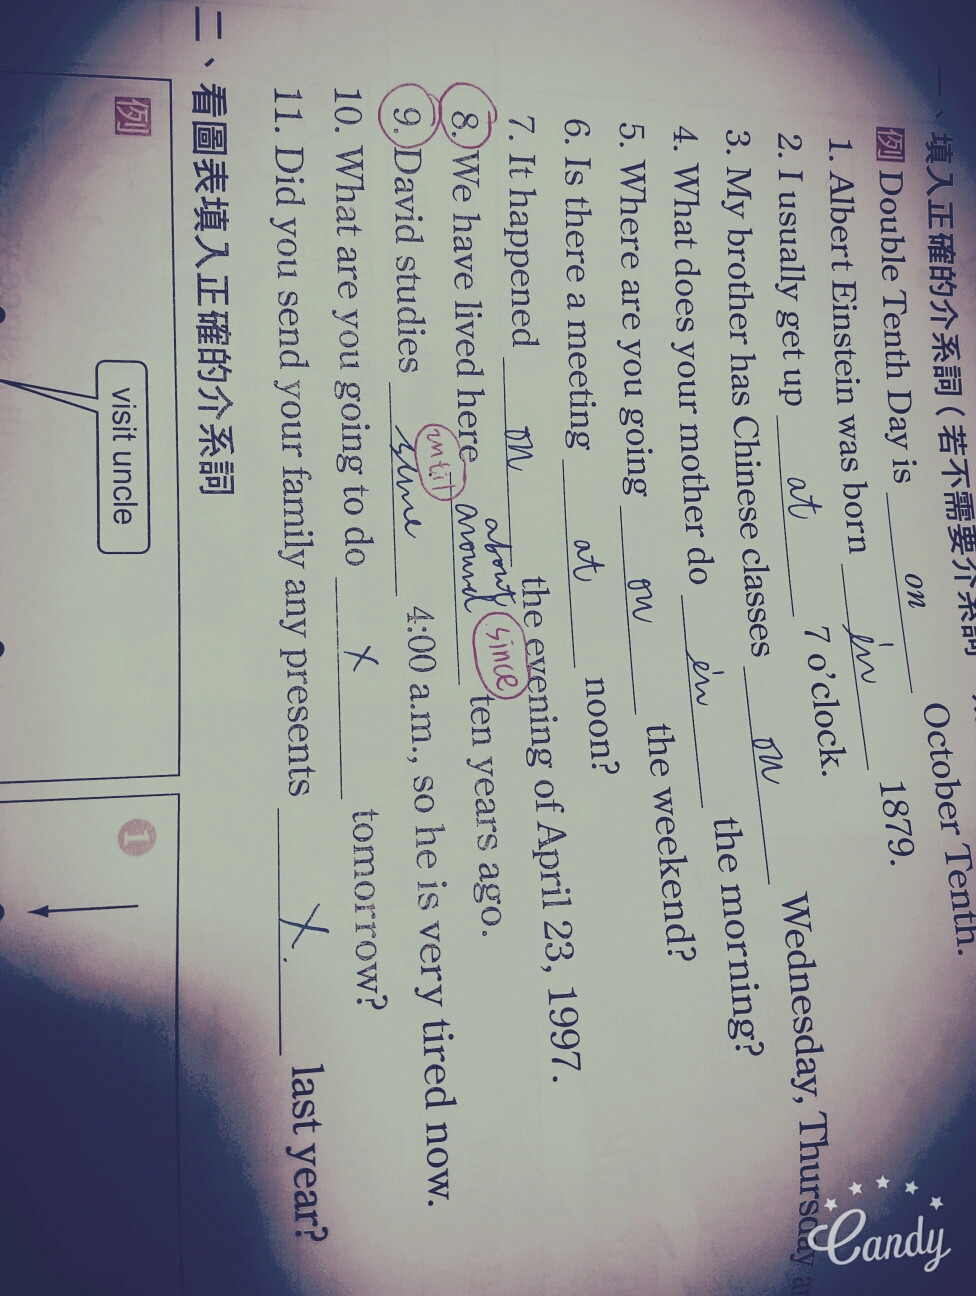 一、填入正確的介系詞(若不需要介系詞
例 Double Tenth Day is on October Tenth.
1. Albert Einstein was born in 1879.
2. I usually get up at 7 o'clock.
3. My brother has Chinese classes on Wednesday, Thursday
4. What does your mother do in the morning?
5. Where are you going on the weekend?
6. Is there a meeting at noon?
7. It happened on the evening of April 23, 1997.
about since
8. We have lived here around ten years ago.
until
9. David studies 4:00 a.m., so he is very tired now.
10. What are you going to do X tomorrow?
11. Did you send your family any presents X. last year?
二、看圖表填入正確的介系詞
例
visit uncle
1
Candy